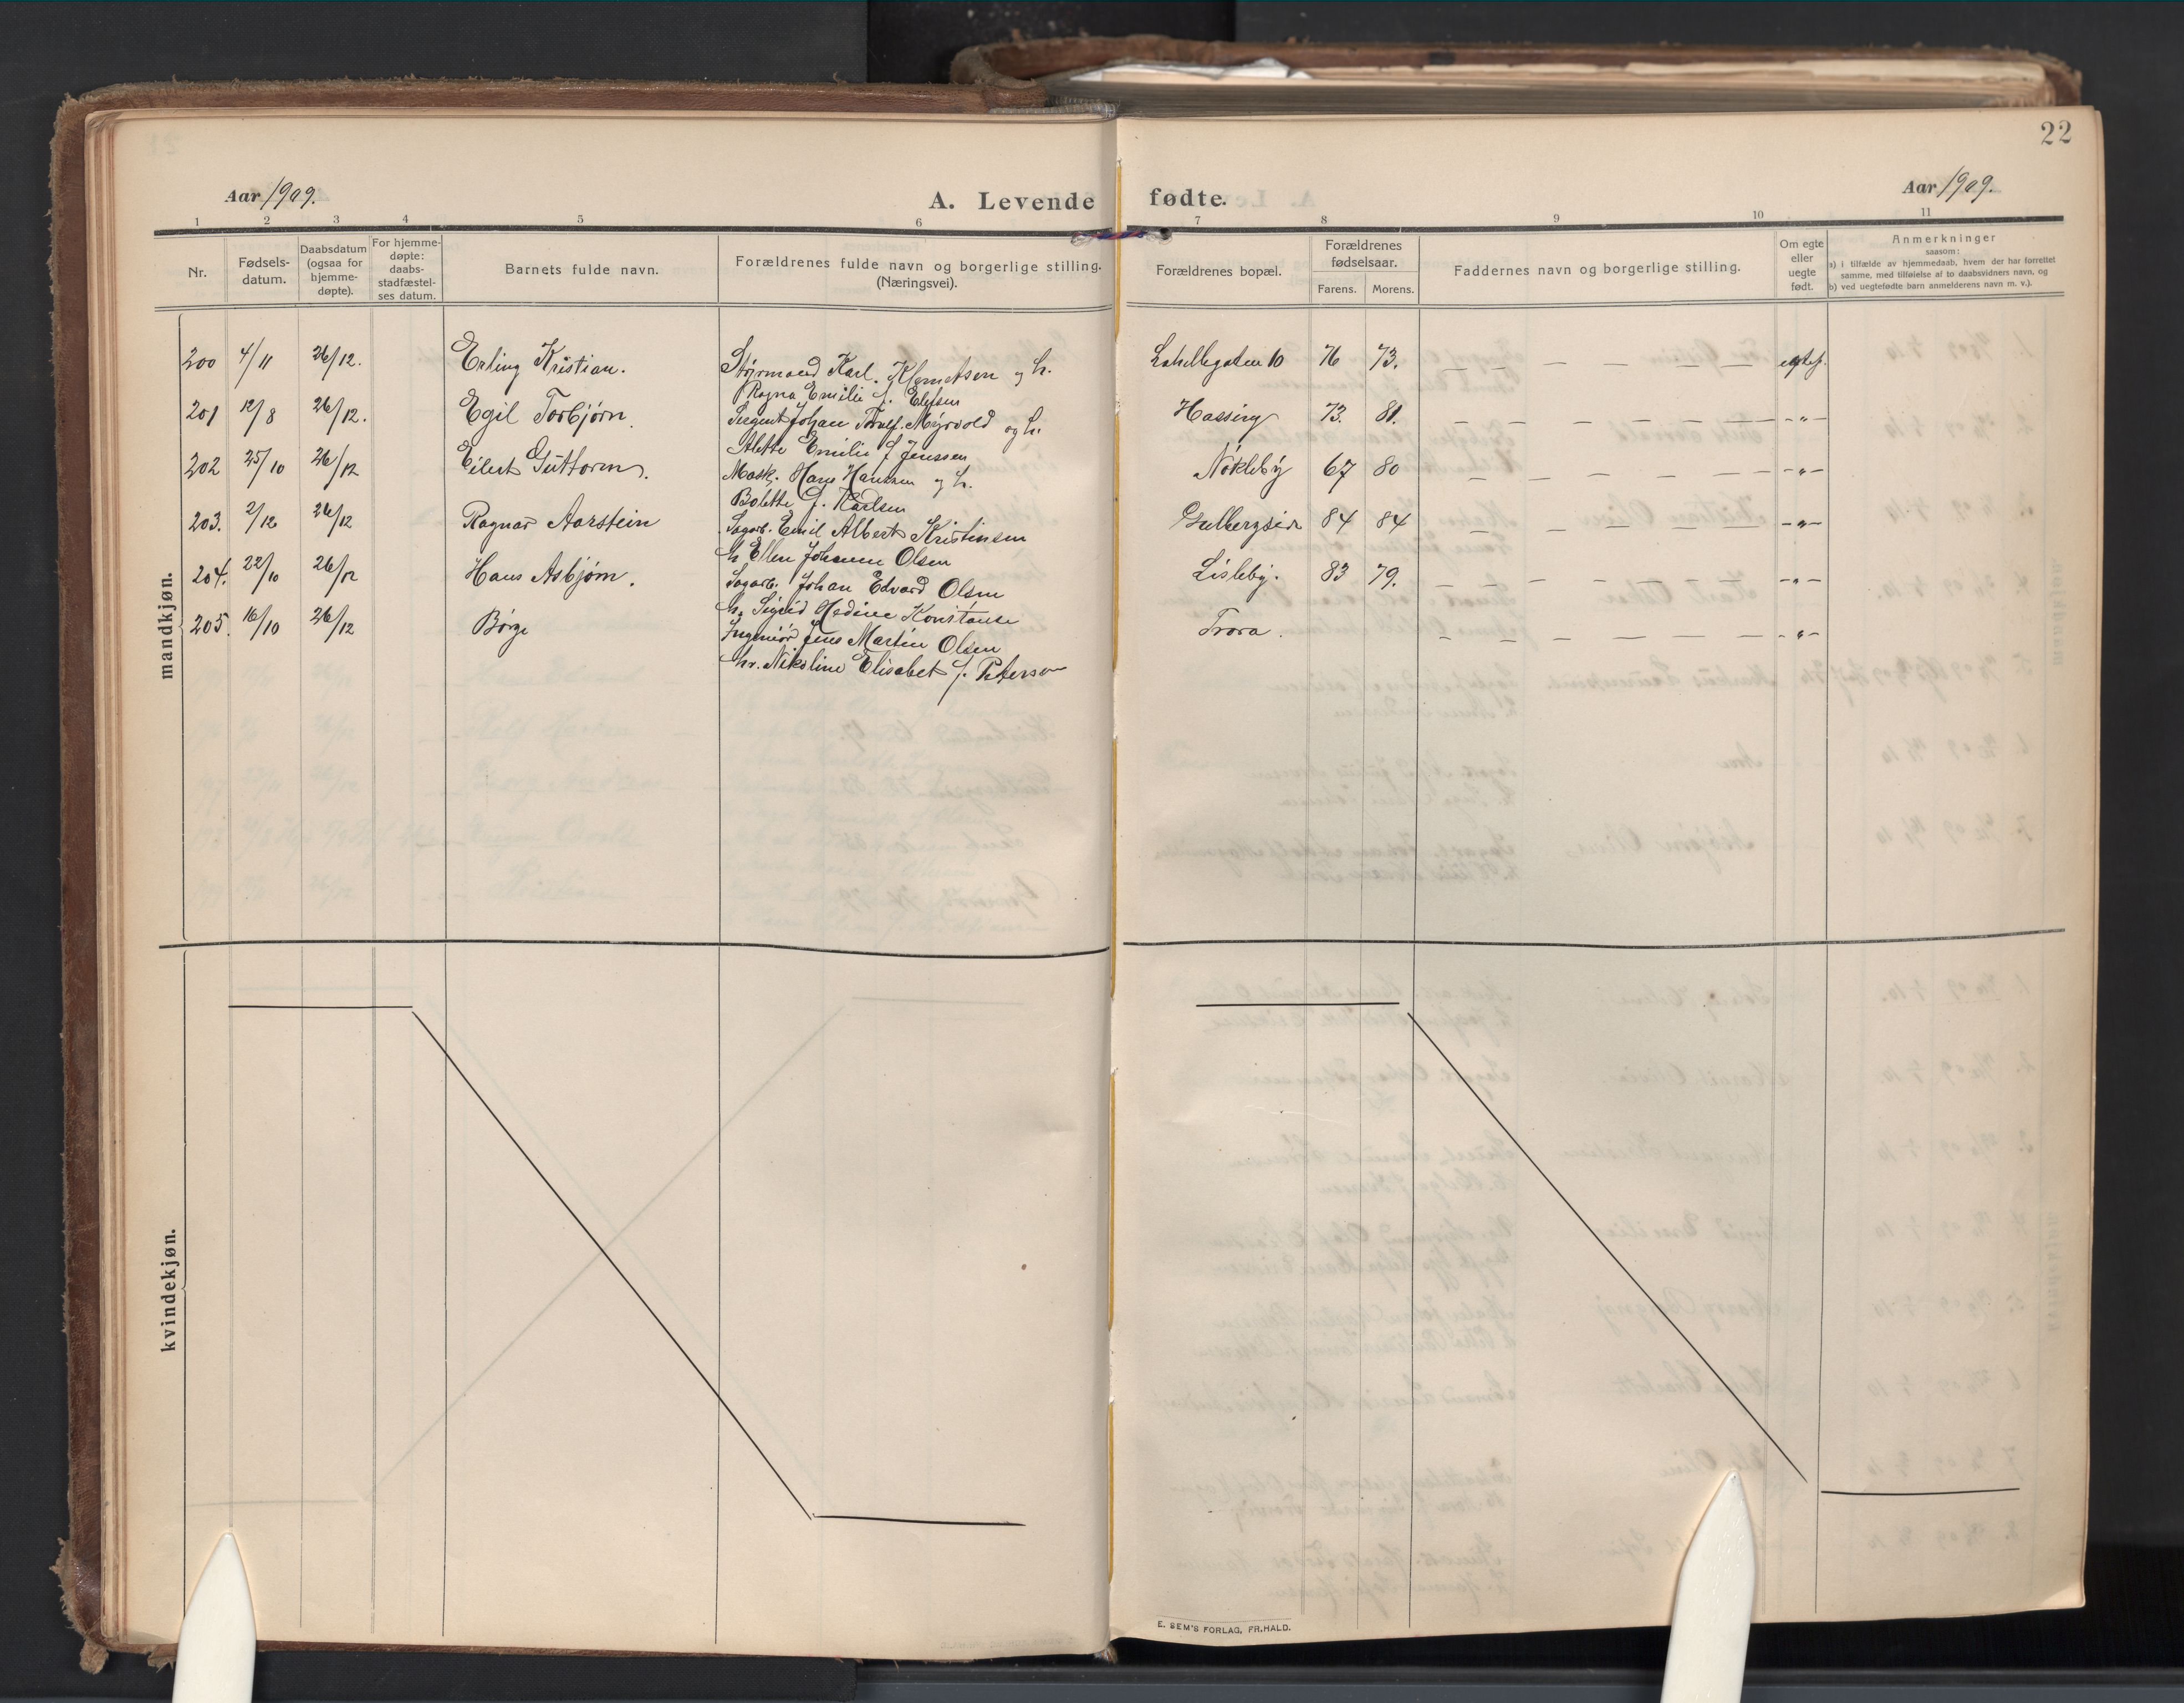 22
Aar 1909.
A. Levende fødte.
Aar 1909.
1 2 3 4 5 6 7 8 9 10 11
Nr.
Fødsels-
datum.
Daabsdatum
(ogsaa for
hjemme-
døpte).
For hjemme-
døpte:
daabs-
stadfæstel-
ses datum.
Barnets fulde navn.
Forældrenes fulde navn og borgerlige stilling.
(Næringsvei).
Forældrenes bopæl.
Forældrenes
fødselsaar.
Farens. Morens.
Faddernes navn og borgerlige stilling.
Om egte
eller
uegte
født.
Anmerkninger
saasom:
a) i tilfælde av hjemmedaab, hvem der har forrettet
samme, med tilføielse af to daabsvidners navn, og
b) ved uegtefødte barn anmelderens navn m. v.).
mandkjøn.
200 4/11 26/12. Erling Kristian. Styrmand Karl. Klemetsen og h. 10 76 73. — — — — — —
Ragna Emilie f.
201 12/8 26/12. Egil Torbjørn. Sergent Johan Myrvold og h. Hassing 73. 81. — — — — — — -"-
Alette Emilie f Jenssen
202 25/10 26/12 Eilert Guttorm. Mask. Hans Hansen og h. Nøkleby 67 80 — — — — — — -"-
Bolette f. Karlsen
203. 2/12 26/12 Ragnar Aarstein Sagarb. Emil Albert Kristinsen 84 84 — — — — — — -"-
h. Ellen Johanne Olsen
204. 22/10 26/12 Hans Asbjørn. Sagarb. Johan Edvard Olsen Lisleby. 83 79. — — — — — — -"-
h. Sigrid Konstanse
205. 16/10 26/12 Børge Ingeniør Jens Martin Olsen Trara. — — — — — — -"-
h. Nikoline Elisabet f. Petersen
kvindekjøn.
E. SEM'S FORLAG, FR.HALD.